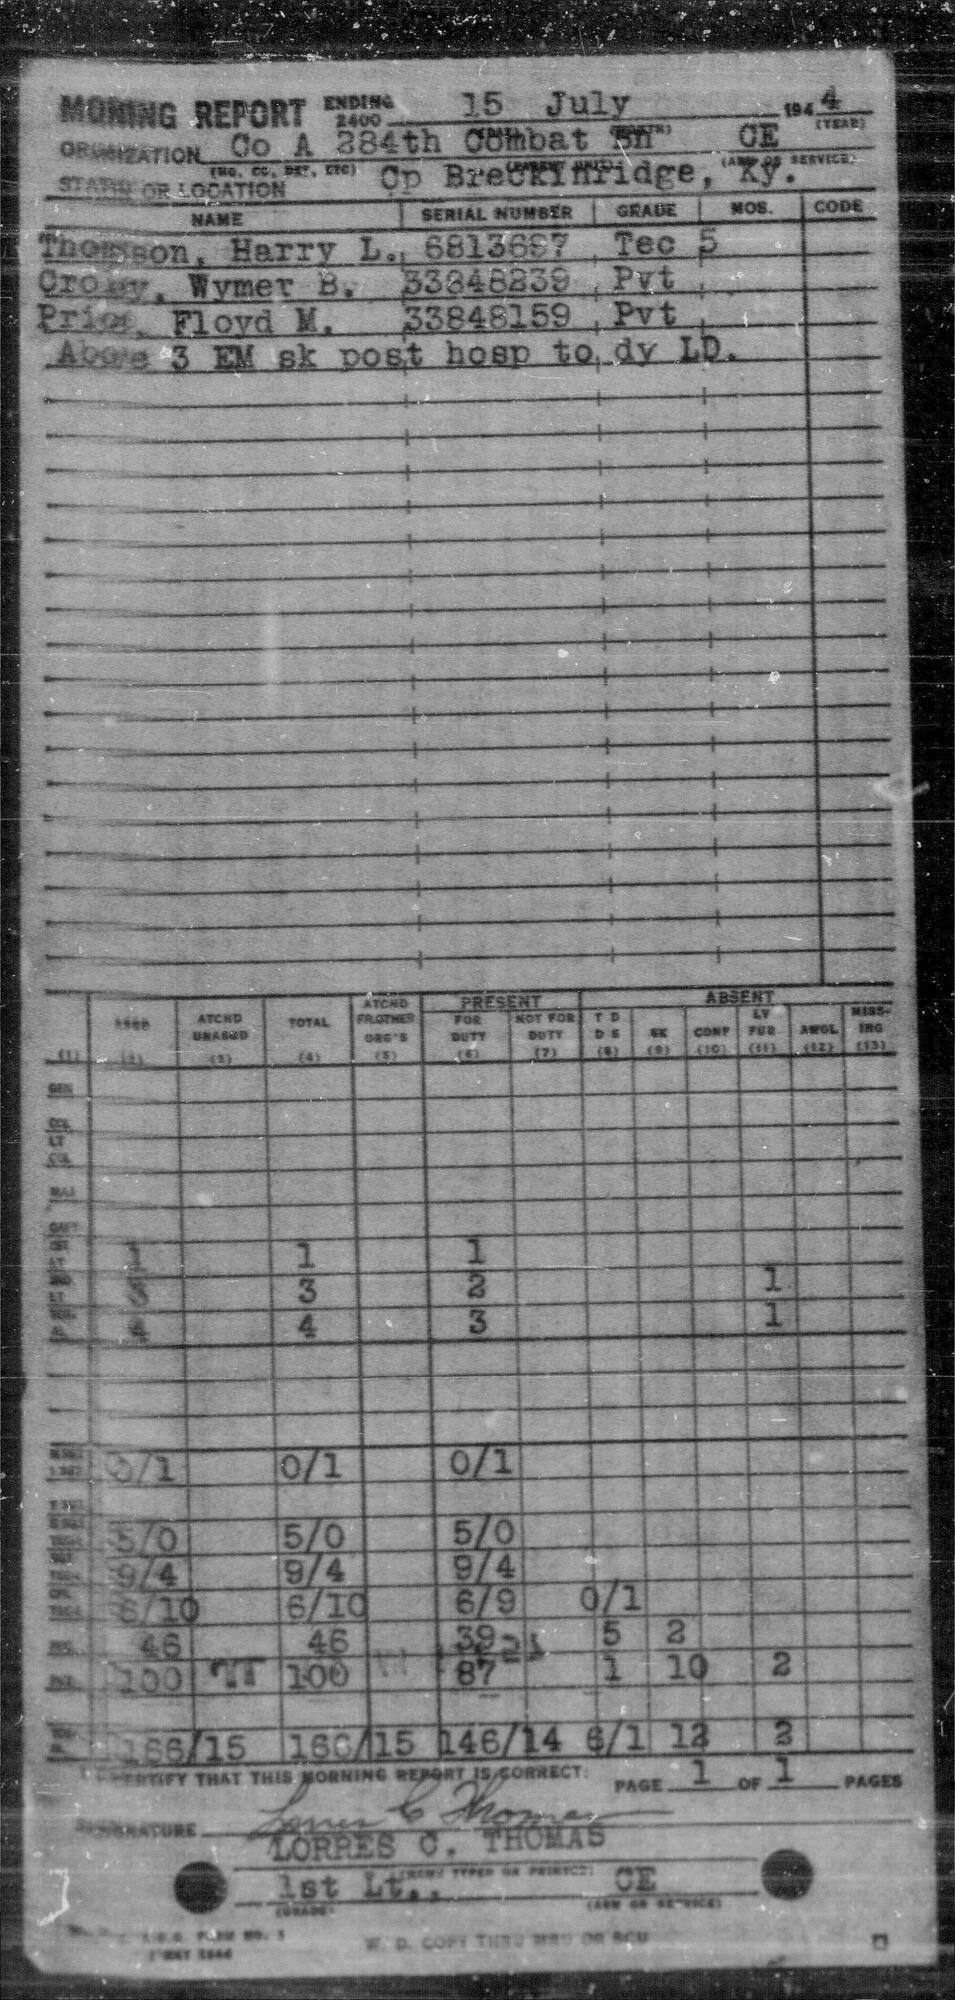 MORNING REPORT ENDING 2400 15 July 1944
(DAY) (MONTH) (YEAR)
ORGANIZATION Co A 284th Combat Bn CE
(HQ, CO, DET, ETC) (PARENT UNIT) (ARM OR SERVICE)
STATION OR LOCATION Cp Breckinridge, Ky.
NAME SERIAL NUMBER GRADE MOS. CODE
Thompson, Harry L. 6813687 Tec 5
Wymer B. 33848239 Pvt
Price, Floyd M. 33848159 Pvt
Above 3 EM sk post hosp to dy LD.
PRESENT ABSENT
ASGD ATCHD UNASGD TOTAL ATCHD FR OTHER ORG'S FOR DUTY NOT FOR DUTY T D D S SK CONF LV FUR AWOL MISSING
(1) (2) (3) (4) (5) (6) (7) (8) (9) (10) (11) (12) (13)
GEN
COL
LT COL
MAJ
CAPT
1ST LT 1 1 1
3 3 2 1
4 4 3 1
0/1 0/1 0/1
5/0 5/0 5/0
9/4 9/4 9/4
6/10 6/10 6/9 0/1
46 46 39 5 2
100 100 87 1 10 2
166/15 166/15 146/14 6/1 12 2
I CERTIFY THAT THIS MORNING REPORT IS CORRECT: PAGE 1 OF 1 PAGES
SIGNATURE Lorres C Thomas
LORRES C. THOMAS
(NAME TYPED OR PRINTED)
1st Lt., CE
(GRADE) (ARM OR SERVICE)
W. D., A.G.O. FORM NO. 1
W. D. COPY THRU MRU OR SCU
1 MAY 1944